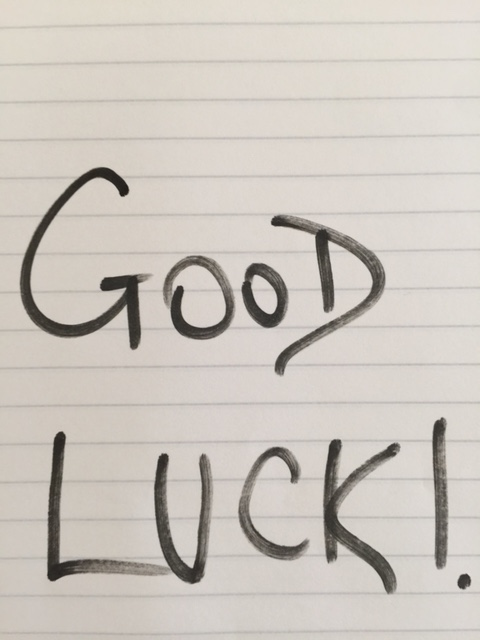 GOOD
LUCK!